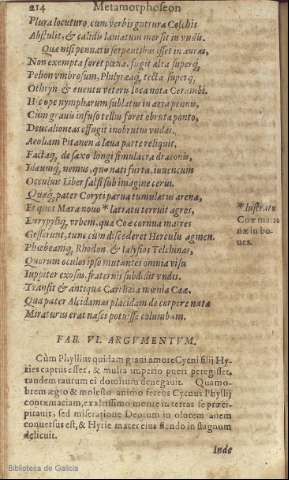 214 Metamorphoseon
Plura locuturo, cum verbis guttura Colchis
Abstulit, & calidis laniatum mersit in vndis.
Quòd nisi pennatis serpentibus isset in auras,
Non exempta foret pœnæ. fugit alta superq́,
Pelion vmbrosum, Philyræaq́, tecta superq́,
Othryn & euentu veteris loca nota Cerambi.
Hic ope nympharum sublatus in aëra pennis,
Cùm grauis infuso tellus foret obruta ponto,
Deucalioneas effugit inobrutus vndas.
Aeoliam Pitanen à læua parte reliquit,
Factaq́, de saxo longi simulacra draconis,
Idæumq́, nemus, quo nati furta, iuuencum
Occuluit Liber falsi sub imagine cerui,
Quaq́, pater Coryti parua tumulatus arena,
Et quos Mæra nouo * latratu terruit agros,
Eurypyliq́, vrbem, qua Coæ cornua matres
Gesserunt, tum cum discederet Herculis agmen.
Phœbeamq́, Rhodon, & Ialysios Telchinas,
Quorum oculos ipso mutantes omnia visu
Iuppiter exosus, fraternis subdidit vndis.
Transit & antiquæ Cartheia mœnia Cææ,
Qua pater Alcidamas placidam de corpore natæ
Miraturus erat nasci potuisse columbam.
* lustrare
Coæ matro
næ in bo-
ues.
FAB. VI. ARGVMENTVM.
Cùm Phyllius quidam graui amore Cycni filij Hy-
ries captus esset, & multa imperio pueri peregisset,
tandem taurum ei dotolum denegauit. Quamo-
brem ægro & molesto animo ferens Cycnus Phyllij
contumaciam, ex altissimo monte in terras se præci-
pitauit. sed miseratione Deorum in olorem auem
conuersus est, & Hyrie mater eius flendo in stagnum
delicuit.
Inde
Biblioteca de Galicia